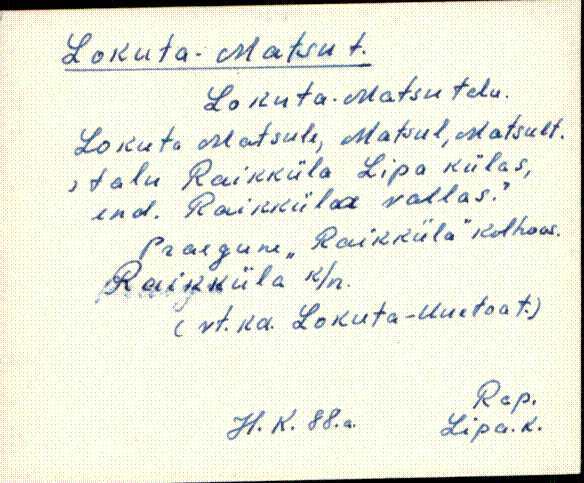 Lokuta-Matsu t.
Lokuta-Matsu talu.
Lokuta Matsule, Matsul, Matsult.
, talu Raikküla Lipa külas,
end. Raikküla vallas."
Praegune „Raikküla" kolhoos.
Raikküla k/n.
(vt. ka. Lokuta-Uuetoa t.)
Rap.
H. K. 88.a. Lipa. k.